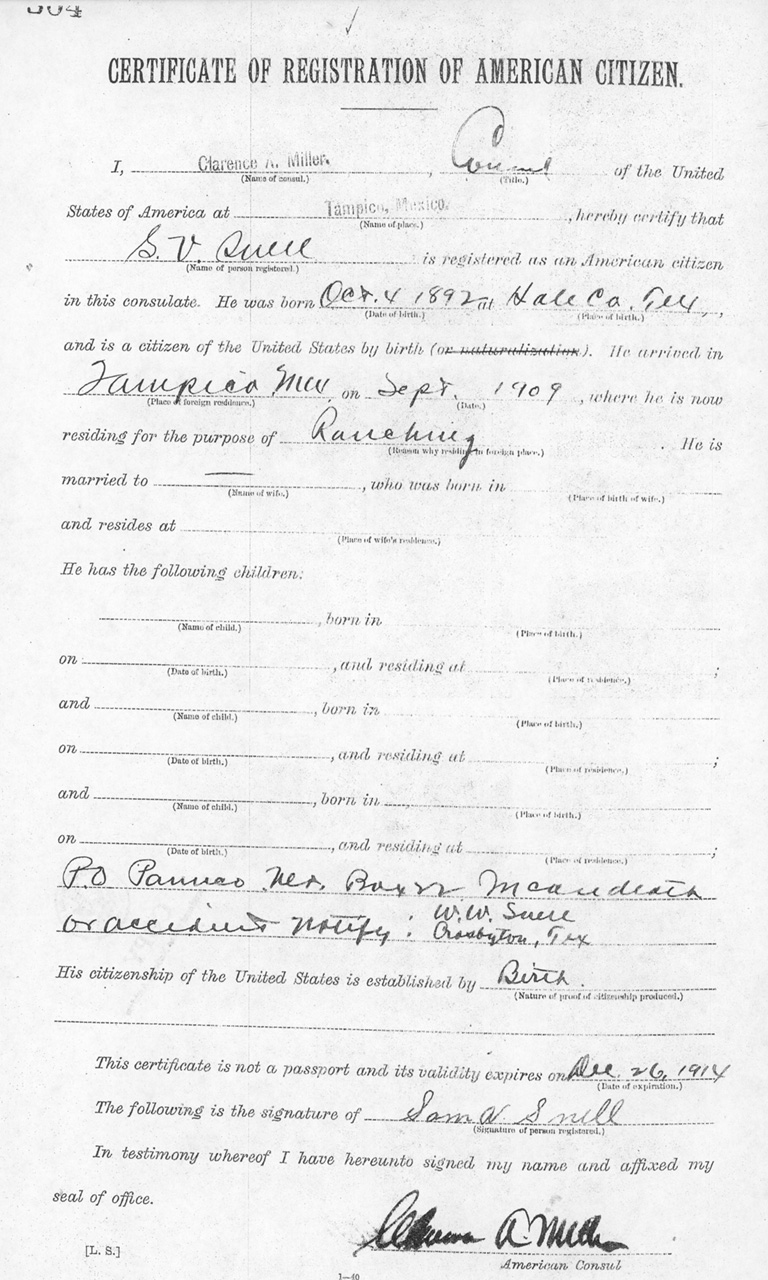 304
CERTIFICATE OF REGISTRATION OF AMERICAN CITIZEN.
I, Clarence A. Miller. , Consul of the United
(Name of consul.) (Title.)
States of America at Tampico, Mexico. , hereby certify that
(Name of place.)
S. V. Snell is registered as an American citizen
(Name of person registered.)
in this consulate. He was born Oct. 4 1892 at Hale Co. Tex ,
(Date of birth.) (Place of birth.)
and is a citizen of the United States by birth (or naturalization). He arrived in
Tampico Mex on Sept. 1909 , where he is now
(Place of foreign residence.) (Date.)
residing for the purpose of Ranching . He is
(Reason why residing in foreign place.)
married to — , who was born in
(Name of wife.) (Place of birth of wife.)
and resides at
(Place of wife's residence.)
He has the following children:
, born in
(Name of child.) (Place of birth.)
on , and residing at ;
(Date of birth.) (Place of residence.)
and , born in
(Name of child.) (Place of birth.)
on , and residing at ;
(Date of birth.) (Place of residence.)
and , born in
(Name of child.) (Place of birth.)
on , and residing at ;
(Date of birth.) (Place of residence.)
P.O Panuco Mex. Box 22 In case death
or accident notify: W. W. Snell
Crosbyton, Tex
His citizenship of the United States is established by Birth.
(Nature of proof of citizenship produced.)
This certificate is not a passport and its validity expires on Dec. 26, 1914
(Date of expiration.)
The following is the signature of Sam V. Snell
(Signature of person registered.)
In testimony whereof I have hereunto signed my name and affixed my
seal of office.
Clarence A. Miller
[L. S.] American Consul
1—40